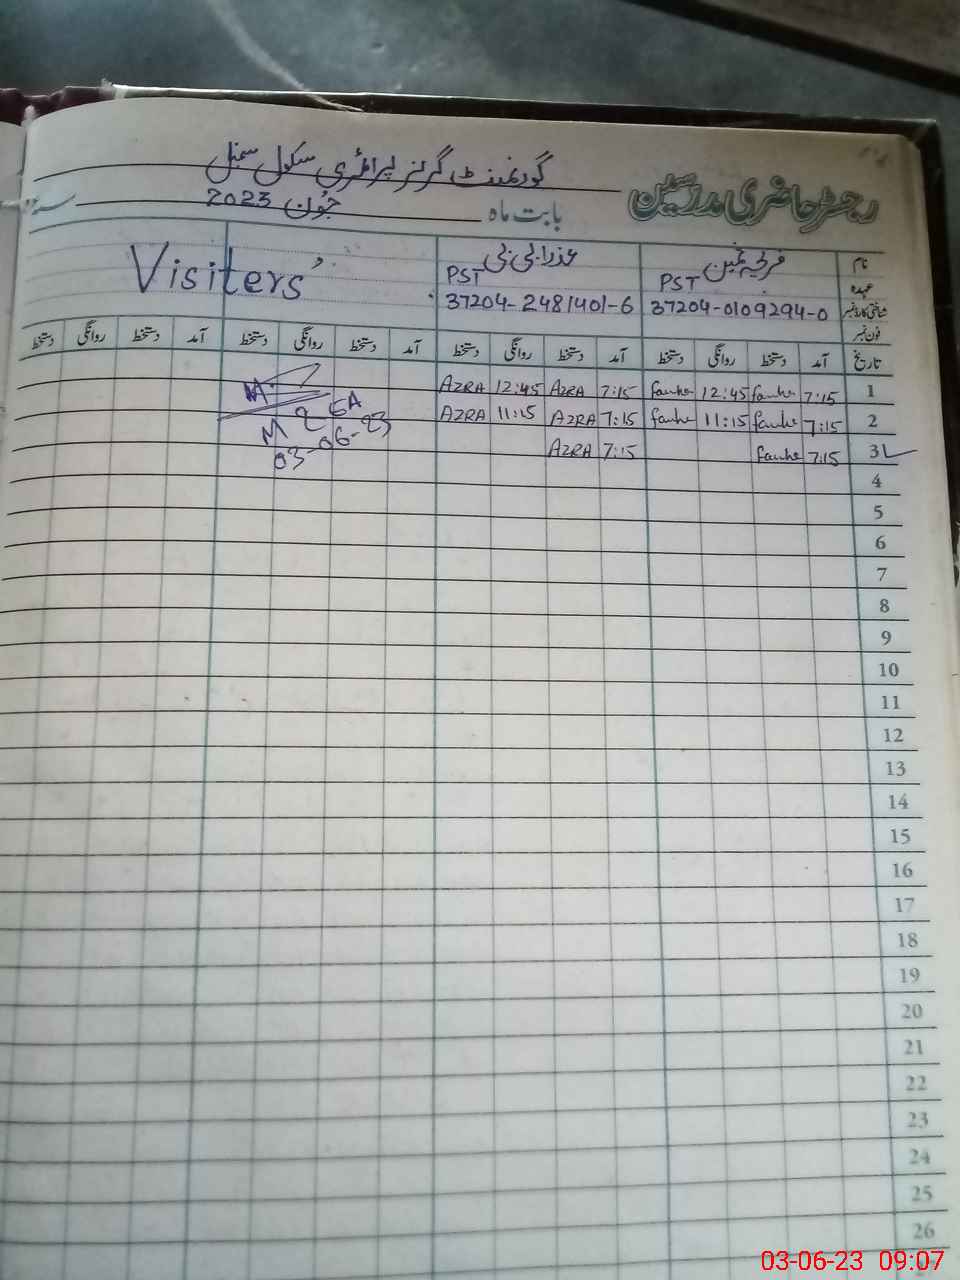 گورنمنٹ گرلز پرائمری سکول سمبل
رجسٹر حاضری مدرسین
بابت ماہ جون 2023
نام عذرا بی بی Visiters'
عہدہ PST PST
شناختی کارڈ نمبر 37204-0109294-0 37204-2481401-6
فون نمبر
تاریخ آمد دستخط روانگی دستخط آمد دستخط روانگی دستخط آمد دستخط روانگی دستخط آمد دستخط روانگی دستخط
1 7:15 12:45 7:15 AZRA 12:45 AZRA
2 7:15 11:15 7:15 AZRA 11:15 AZRA
3 7:15 7:15 AZRA
M EA
03-06-23
4
5
6
7
8
9
10
11
12
13
14
15
16
17
18
19
20
21
22
23
24
25
26
03-06-23 09:07